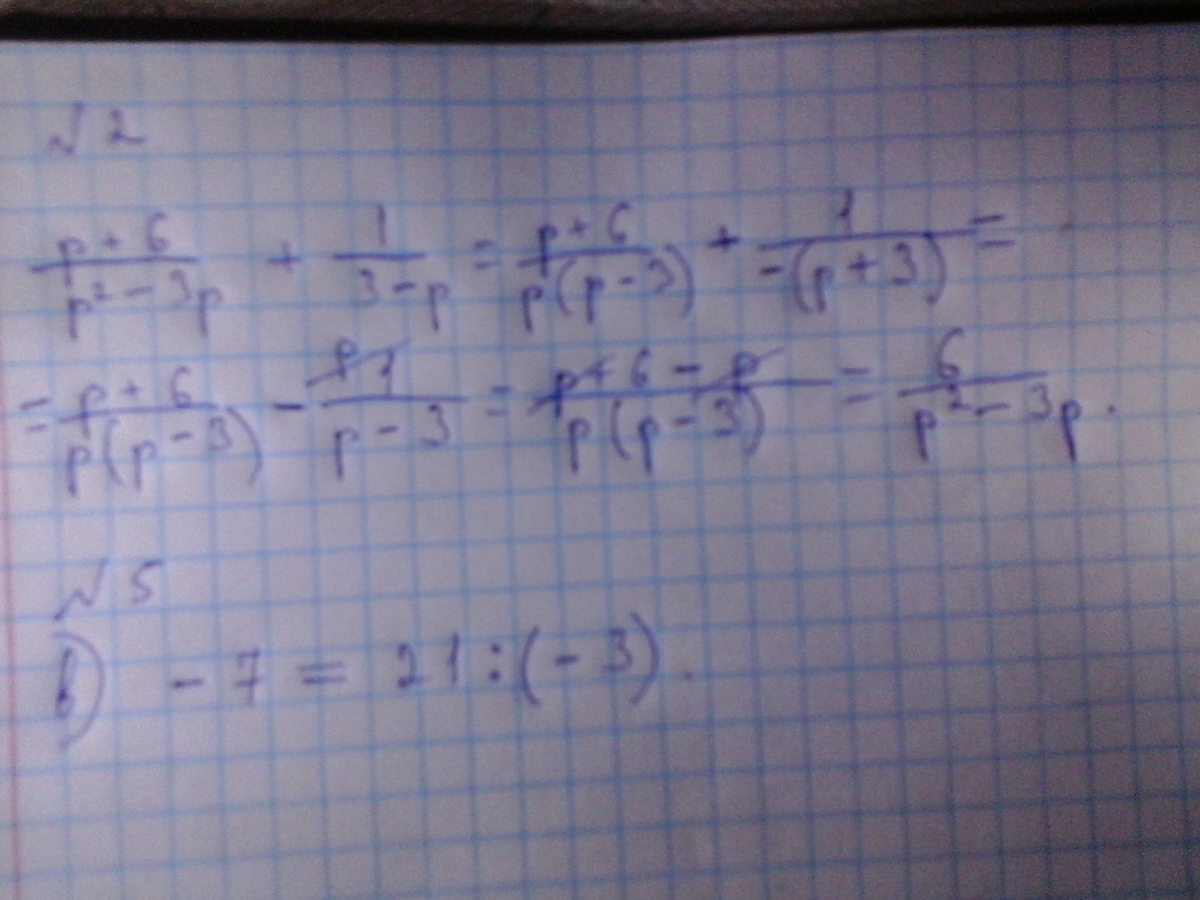 № 2
(p + 6)/(p² - 3p) + 1/(3 - p) = (p + 6)/(p(p - 3)) + 1/(-(p + 3)) =
= (p + 6)/(p(p - 3)) - ᵖ⁄1/(p - 3) = (p + 6 - p)/(p(p - 3)) = 6/(p² - 3p).
№ 5
в) - 7 = 21 : (- 3).